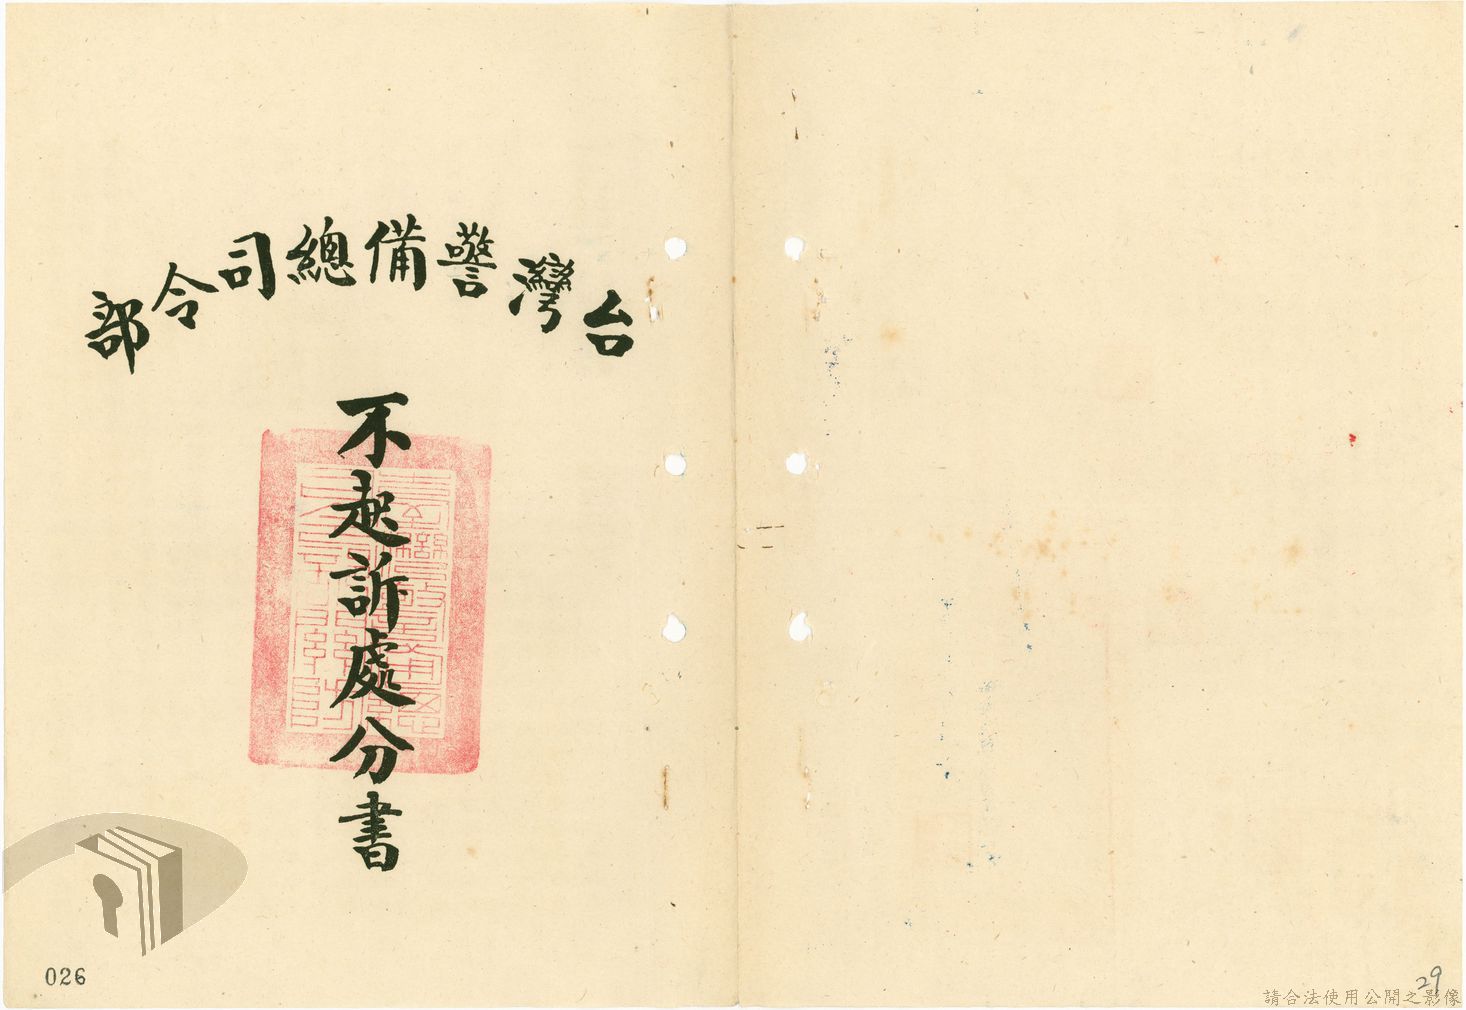 台灣警備總司令部
不起訴處分書
026
29
請合法使用公開之影像